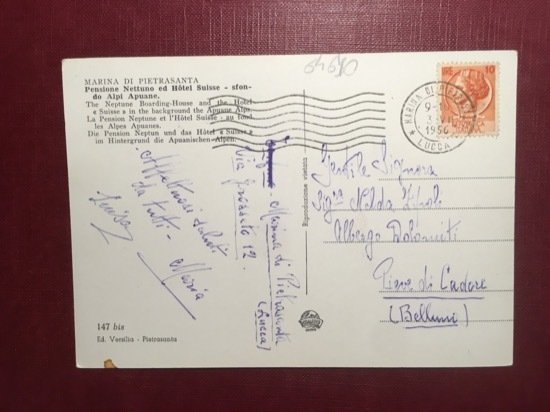 04690
MARINA DI PIETRASANTA
Pensione Nettuno ed Hôtel Suisse - sfon-
do Alpi Apuane.
The Neptune Boarding-House and the Hotel
« Suisse » in the background the Apuane Alps.
La Pension Neptune et l'Hôtel Suisse - au fond
les Alpes Apuanes.
Die Pension Neptun und das Hôtel « Suisse »
im Hintergrund die Apuanischen-Alpen.
Affettuosi saluti
da tutti - Maria
Luisa
Marina di Pietrasanta
(Lucca)
Via Grosseto 12.
147 bis
Ed. Versilia - Pietrasanta
Riproduzione vietata
10
MARINA DI PIETRASANTA
LUCCA
Gentile Signora
Sig.ra Nelda
Albergo Dolomiti
Pieve di Cadore
(Belluno)